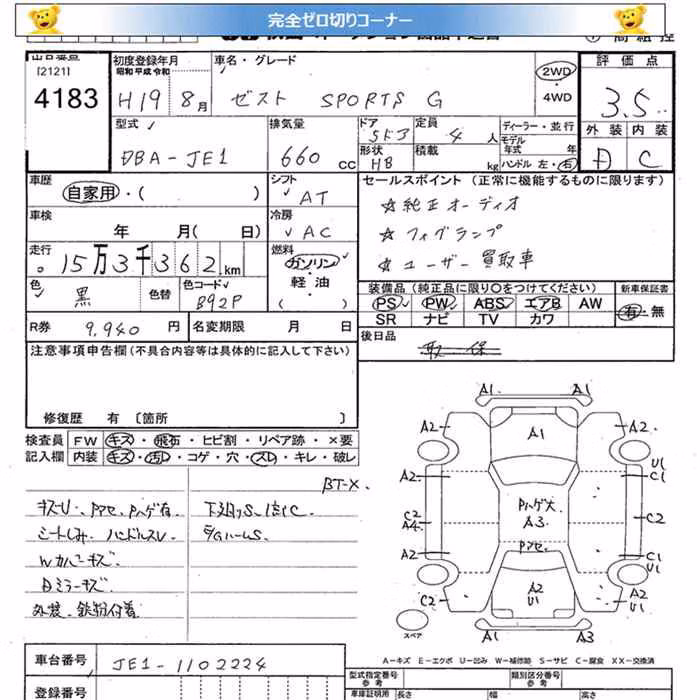 完全ゼロ切りコーナー
初度登録年月
昭和 平成 令和
車名・グレード
評価点
[2121]
4183
H19 8月
ゼスト SPORTS G
2WD
・
4WD
3.5
外装 内装
D C
型式
DBA-JE1
排気量
660 CC
ドア
5ドア
形状
HB
定員
4 人
積載
kg
ディーラー・並行
モデル年式 年
ハンドル 左・右
車歴
自家用・( )
シフト
AT
セールスポイント (正常に機能するものに限ります)
☆純正オーディオ
☆フォグランプ
☆ユーザー買取車
車検
年 月( 日)
冷房
AC
走行
15万3千362km
燃料
ガソリン
・
軽油
( )
色
黒
色替
色コード
B92P
装備品 (純正品に限り○をつけてください)
新車保証書
PS PW ABS エアB AW
SR ナビ TV カワ
有・無
R券 9,940 円
名変期限 月 日
後日品
取 保
注意事項申告欄(不具合内容等は具体的に記入して下さい)
修復歴 有 〔箇所 〕
検査員
記入欄
FW キズ・飛石・ヒビ割・リペア跡・×要
内装 キズ・汚レ・コゲ・穴・スレ・キレ・破レ
BT-X.
キズU、Pアセ、Pハゲ有
シートしみ、ハンドルスレ
Wカバーキズ
Dミラーキズ
外装、鉄粉付着
A1 A1
A2 A1 A2
U1
C1
C2
A4
Pハゲ大
A3
C2
Pアセ
A2
C1
U1
C2
A2
U1
A2
U1
スペア
A1 A3
A-キズ E-エクボ U-凹み W-補修跡 S-サビ C-腐食 XX-交換済
車台番号
JE1-1102224
登録番号
型式指定番号
参考
類別区分番号
参考
車庫証明用
長さ
幅